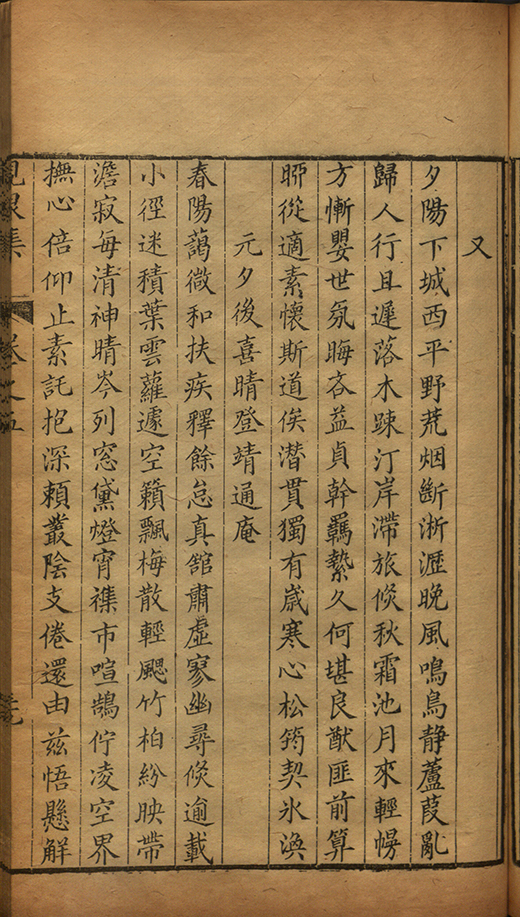 又
夕陽下城西平野荒烟斷淅瀝晚風鳴鳥静蘆葭亂
歸人行且遲落木踈汀岸滯旅倐秋霜池月來輕幌
方慚嬰世氛晦吝益貞幹羈縶久何堪良猷匪前算
聊從適素懷斯道俟潜貫獨有歲寒心松筠契氷渙
元夕後喜晴登靖通庵
春陽藹微和扶疾釋餘怠真舘肅虛寥幽尋倐逾載
小徑迷積葉雲蘿遽空籟飄梅散輕颸竹柏紛映帶
澹寂每清神晴岑列窓黛燈宵襍市喧鵠佇凌空界
撫心倍仰止素託抱深頼叢陰支倦還由兹悟懸解